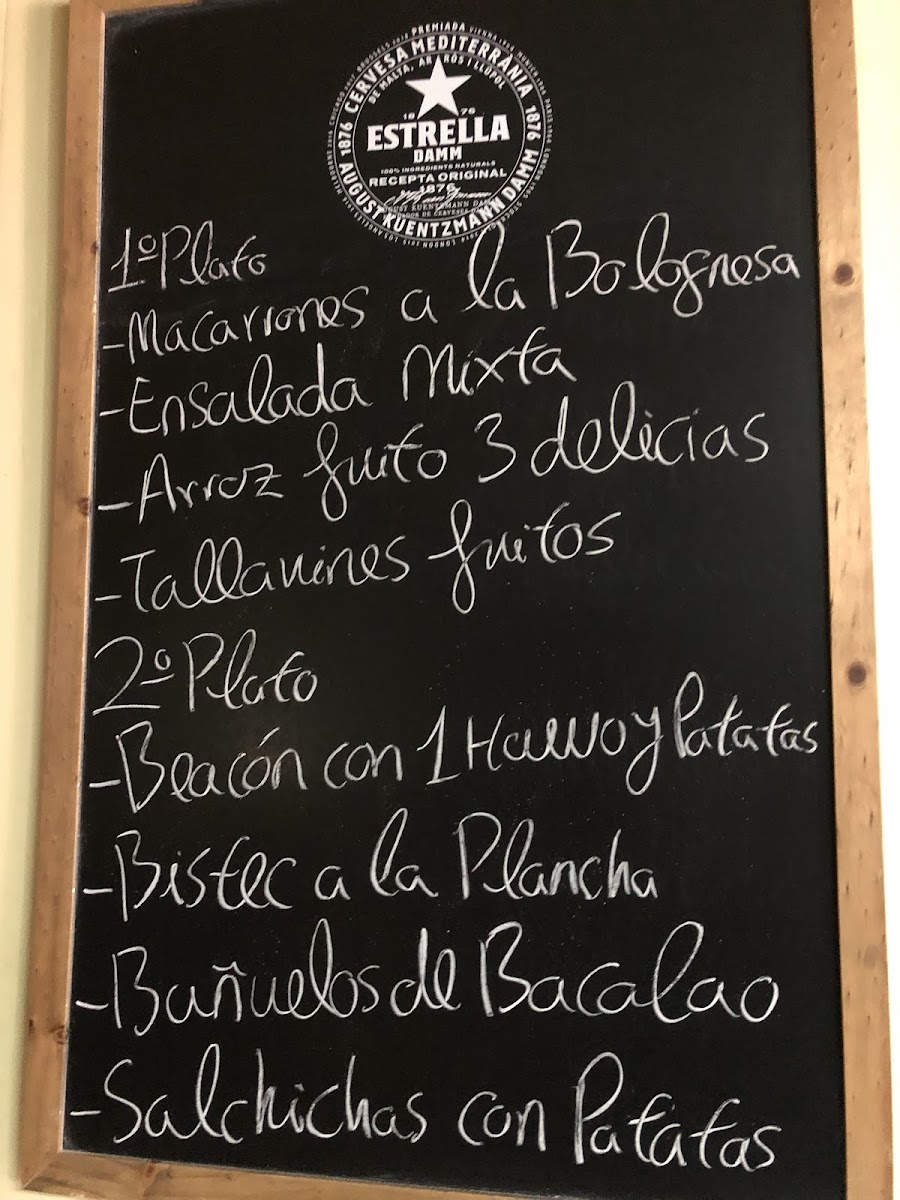 PREMIADA
CERVESA MEDITERRÀNIA
DE MALTA, ARRÒS I LLÚPOL
1876
1876
18 76
ESTRELLA
DAMM
100% INGREDIENTS NATURALS
RECEPTA ORIGINAL
1876
AUGUST KUENTZMANN DAMM
AUGUST KUENTZMANN DAMM
1º Plato
-Macarrones a la Bolognesa
-Ensalada Mixta
-Arroz fruito 3 delicias
-Tallarines fruitos
2º Plato
-Beacón con 1 Huevo y Patatas
-Bistec a la Plancha
-Buñuelos de Bacalao
-Salchichas con Patatas